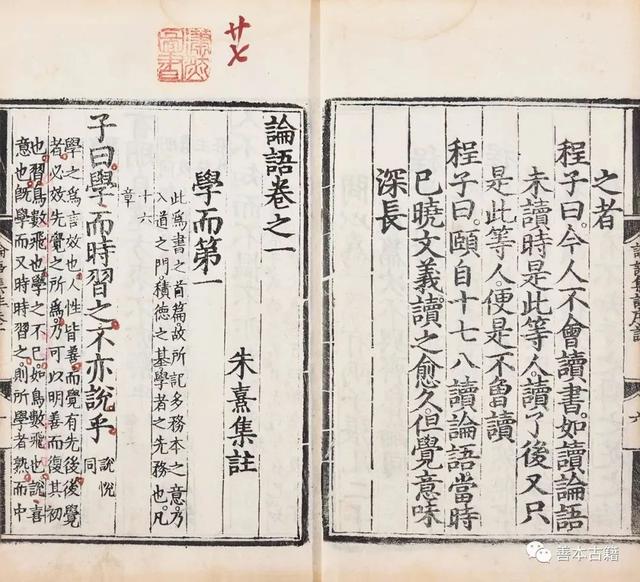 之者
程子曰今人不會讀書如讀論語
未讀時是此等人讀了後又只
是此等人便是不曾讀
程子曰頤自十七八讀論語當時
已曉文義讀之愈久但覺意味
深長
廿七
論語卷之一
學而第一
朱熹集註
此爲書之首篇故所記多務本之意乃
入道之門積德之基學者之先務也凡
十六
章
子曰學而時習之不亦說乎
說悅
同
學之爲言效也人性皆善而覺有先後後覺
者必效先覺之所爲乃可以明善而復其初
也習鳥數飛也學之不已如鳥數飛也說喜
意也旣學而又時時習之則所學者熟而中
善本古籍